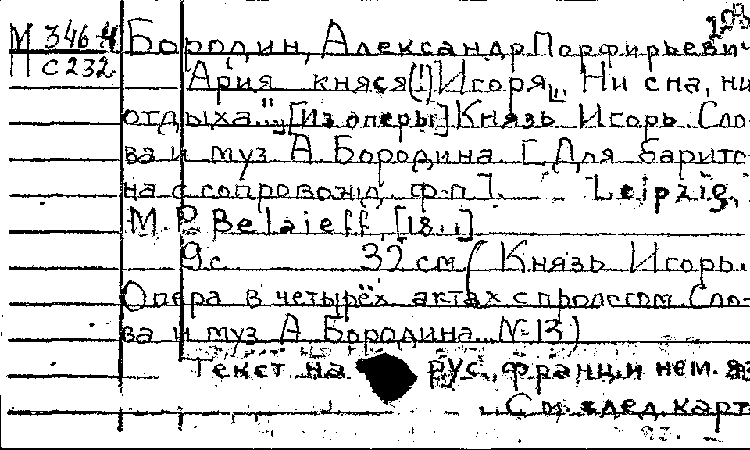 М 346-4 Бородин, Александр Порфирьевич
П С232 Ария князя(!) Игоря „Ни сна, ни
отдыха..." [Из оперы] Князь Игорь. Сло-
ва и муз А. Бородина. [Для барито-
на с сопровожд. ф-п.]. Leipzig,
M. P. Belaieff, [18..]
9 с. 32 см (Князь Игорь.
Опера в четырёх актах с прологом. Сло-
ва и муз А. Бородина. №13)
Текст на рус., франц. и нем. яз
См. след. карт